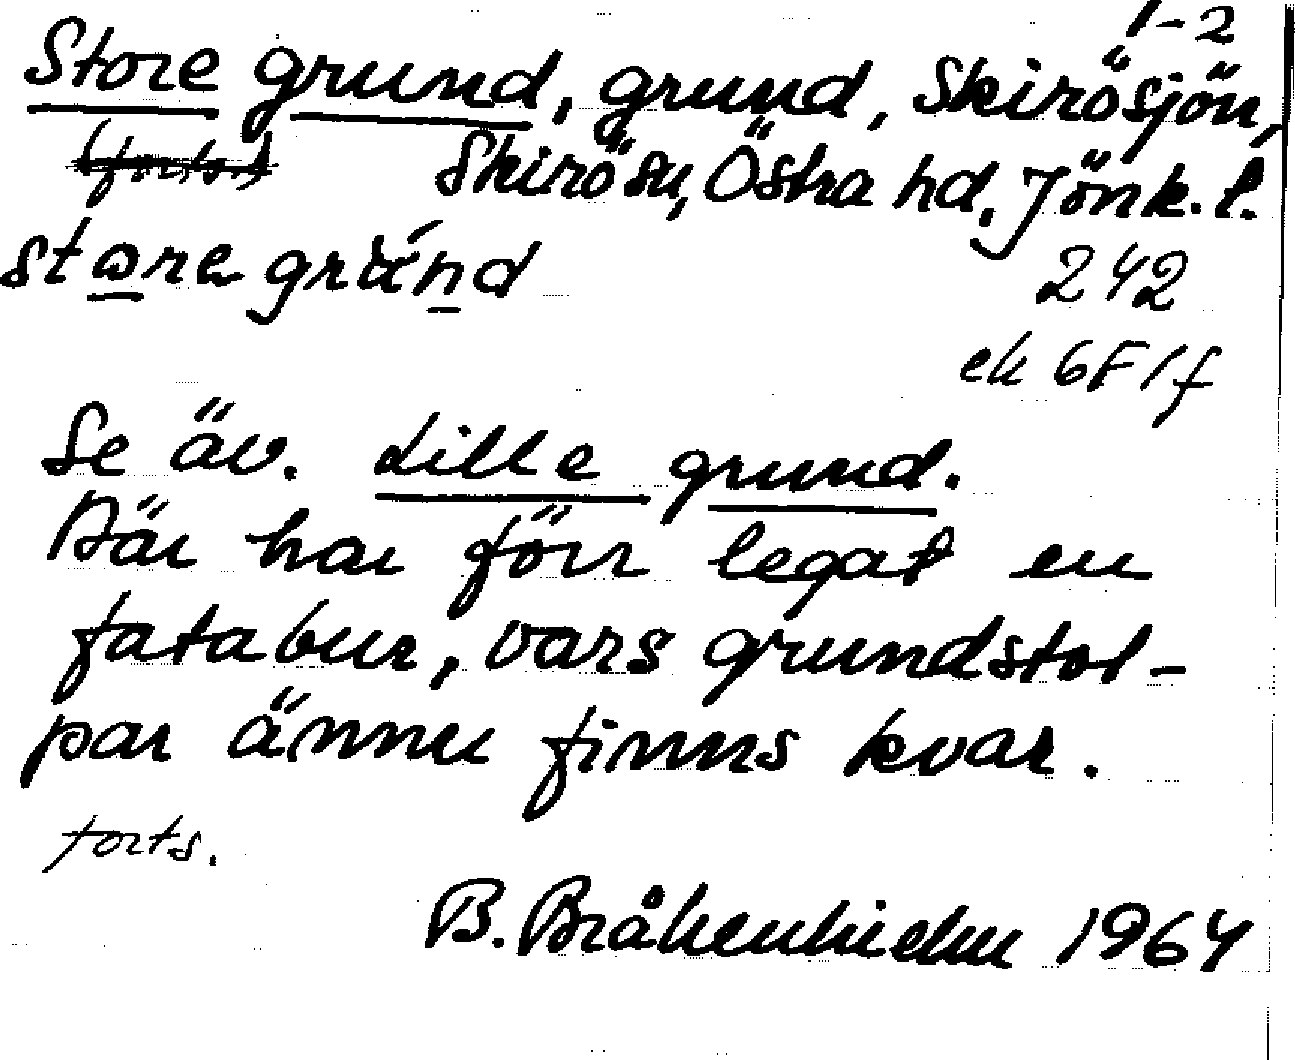 1-2
Store grund, grund, Skirösjön,
(forts.) Skirö sn, Östra hd, Jönk. l.
store gränd 242
ek 6F1f
Se äv. Lille grund.
Där har förr legat en
fatabur, vars grundstol-
par ännu finns kvar.
forts.
B. Bråkenhielm 1964